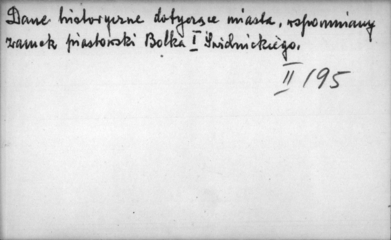 Dane historyczne dotyczące miasta, wspomniany
zamek piastowski Bolka I Świdnickiego.
II/195